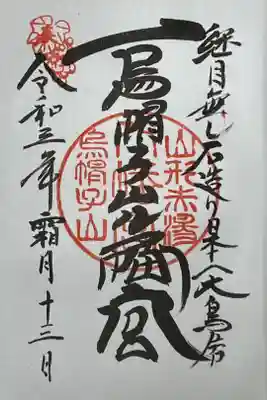 継目無し石造り日本一大鳥居
烏帽子山八幡宮
令和三年霜月十三日
山形赤湯
烏帽子山